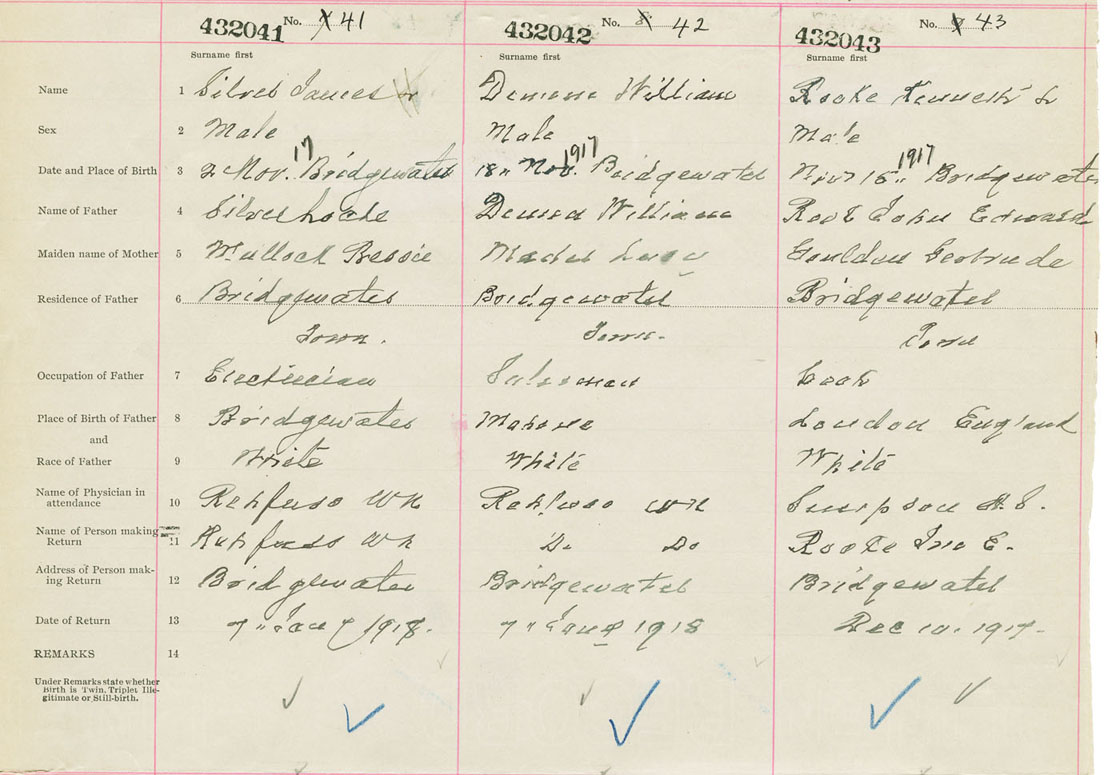 432041 No. 41 432042 No. 42 432043 No. 43
Surname first Surname first Surname first
Name 1 Silver James William Rooke Kenneth
Sex 2 Male Male Male
Date and Place of Birth 3 2 Nov. 17 Bridgewater 18" Nov. 1917 Bridgewater Nov 15" 1917 Bridgewater
Name of Father 4 Silver William John Edward
Maiden name of Mother 5 Bessie Lucy Gertrude
Residence of Father 6 Bridgewater Bridgewater Bridgewater
Town. Town. Town
Occupation of Father 7 Electrician Salesman Cook
Place of Birth of Father 8 Bridgewater Mahone London England
and
Race of Father 9 White White White
Name of Physician in
attendance 10 Rehfuss WN Rehfuss WN Simpson
Name of Person making
Return 11 Rehfuss WN Do Do Rooke Jno E.
Address of Person mak-
ing Return 12 Bridgewater Bridgewater Bridgewater
Date of Return 13 7" 1918. 7" 1918 Dec 10. 1917.
REMARKS 14
Under Remarks state whether
Birth is Twin, Triplet Ille-
gitimate or Still-birth.